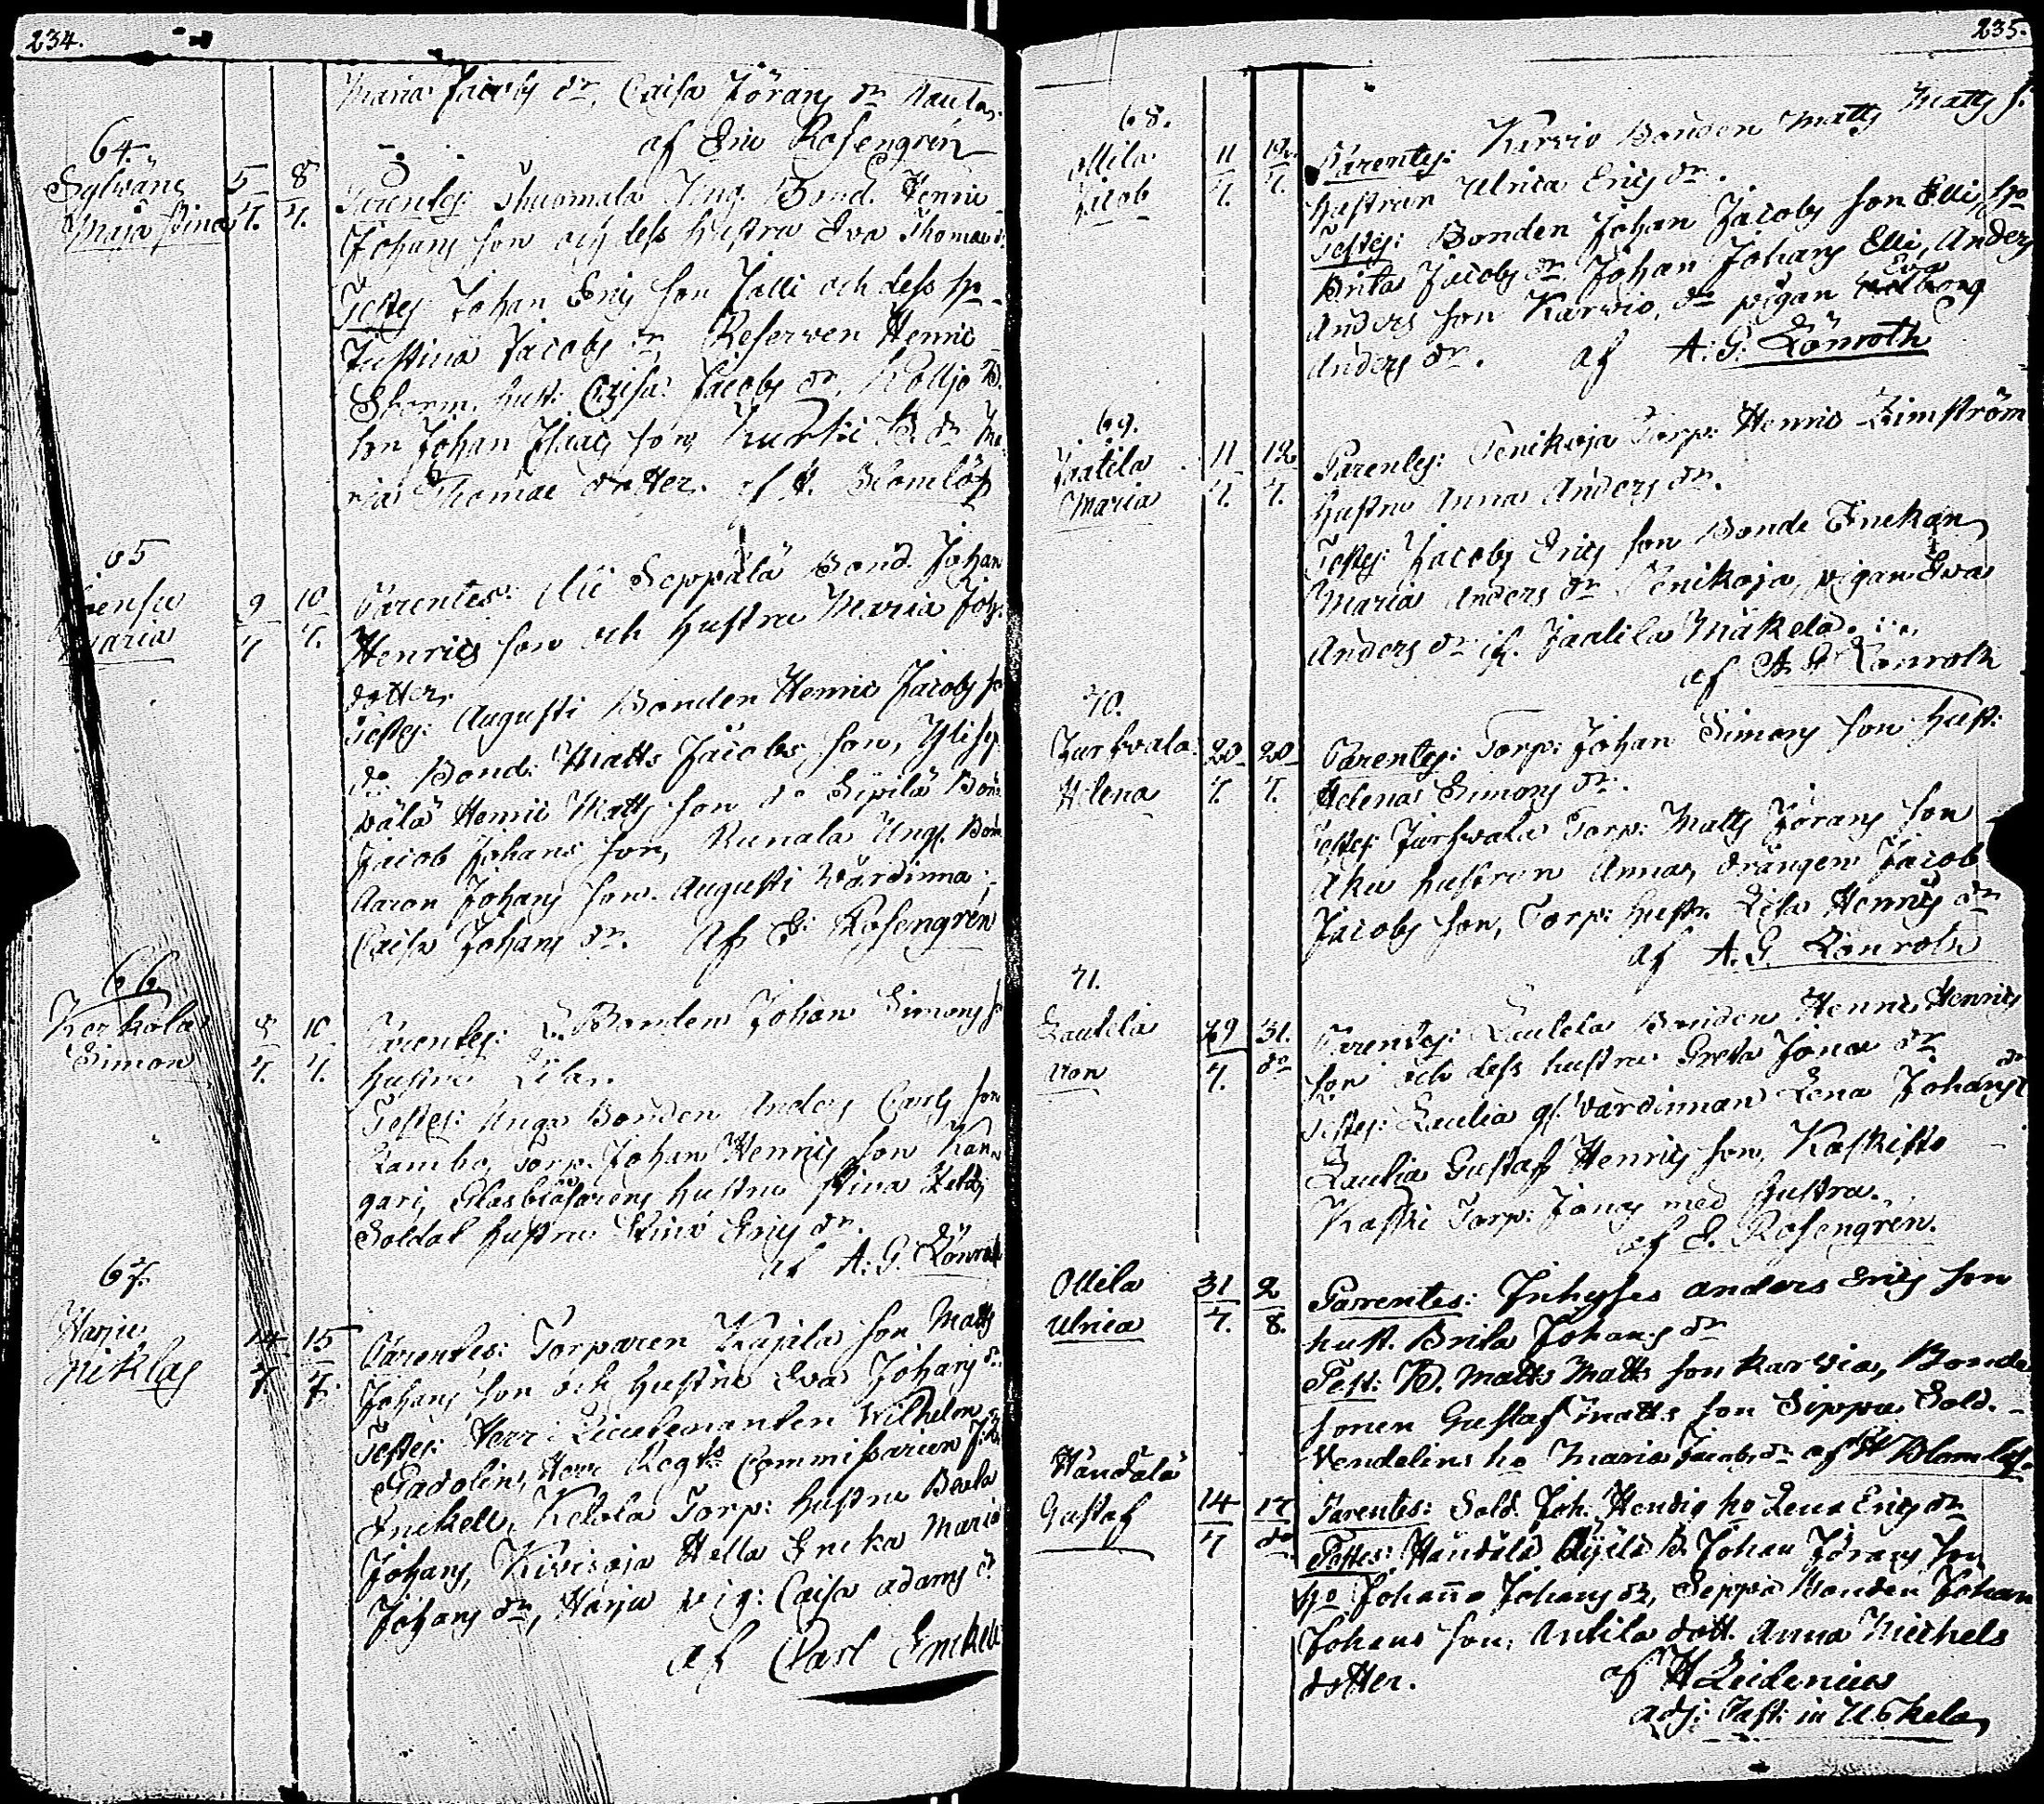 234.
Maria Jacobs dr, Caisa Jörans dr
af Eric Rosengren
64.
Sylwäns 5 8
Maja Stina 7. 7.
Parentes: Bond. Henric
Johans son och dess hustru Eva Thomæ dr
Testes Johan Erics son Jalli och dess ho
Justina Jacobs dr Reserven Henric
Storm, hust: Caisa Jacobs dr, B.
son Johan Isaacs son, B. dr Ma
ria Thomæ dotter. af H. Blomlöf
65
9 10
Maria 7 7.
Parentes: Seppälä Bond. Johan
Henrics son och hustru Maria Joh.
dotter.
Testes: Augusti Bonden Henric Jacobs so
do Bond: Matts Jacobs son,
Henric Matts son do Sipilä Bon
Jacob Johans son, Ungs. Bon
Aaron Johans son. Augusti Wärdinna
Caisa Johans dr. af E: Rosengren
66.
Kerkola 8 10
Simon 7. 7.
Parentes: Bonden Johan Simons so
hustru Lisa.
Testes: Unga Bonden Anders Carls son
Lambo, Torp. Johan Henrics son Kan
gari, Glasblåsarens hustru Stina
Soldat hustru Stina Erics dr.
af A: G. Lönroth
67.
Harju 14 15
Niklas 7 7.
Parentes: Torparen son Matts
Johans son och hustru Eva Johans dr
Testes: Herr Lieutenanten Wilhelm
Gadolin, Herr Regts Commissarien
Enckell, Ketola Torp: hustru Beata
Johans, Kivisoja Hella Ericka Maria
Johans dr, Harju pig: Caisa Adams d.
af Carl Enckell
235.
68.
Ollila 11 12
Jacob 7. 7.
Parentes: Karvio Bonden Matts Matts s.
hustrun Ulrica Erics dr.
Testes: Bonden Johan Jacobs son Elli, ho
Brita Jacobs dr Johan Johans Elli, Anders
Anders son Karvio, dr pigan Eva
Anders dr. af A: G: Lönroth
69.
Jaatila 11 12
Maria 7. 7.
Parentes: Penikoja Torp: Henric Limström
hustru Anna Anders dr.
Testes: Jacobs Erics son Bonde
Maria Anders dr Penikoja, pigan Eva
Anders dr if. Jaatila Mäkelä.
af A. G. Lönroth
70.
20 20
Helena 7. 7.
Parentes: Torp: Johan Simons son hust:
Helena Simons dr.
Testes Torp: Matts Jörans son
Aku hustrun Anna, drängen Jacob
Jacobs son, Torp: hustr. Lisa Henrics dr
af A. G. Lönroth
71.
Lautela 29 31.
7. do
Parentes: Lautela Bonden Henric Henrics
son och dess hustru Greta Jonæ dr
Testes: Laulia gl. Värdinnan Lena Johans dr
Laulia Gustaf Henrics son, Kaskisto
Kaski Torp: Jonas med hustru.
af E. Rosengren.
Ollila 31 2
Ulrica 7. 8.
Parentes: Inhyses Anders Erics son
hust. Brita Johans dr
Test: B. Matts Matts son Karvia, Bonde
sonen Gustaf Matts son Sippu Sold.
Vendelins ho Maria Jacobs dr af H Blomlöf.
Händälä
Gustaf 14 17
7 do
Parentes: Sold. Joh. Hendig ho Lena Erics dr
Testes: Händälä B. Johan Jörans son
ho Johanna Johans dr, Seppä Bonden Johan
Johans son, Antila dott. Anna Michels
dotter. af H Leidenius
adj: Past: in Uskela